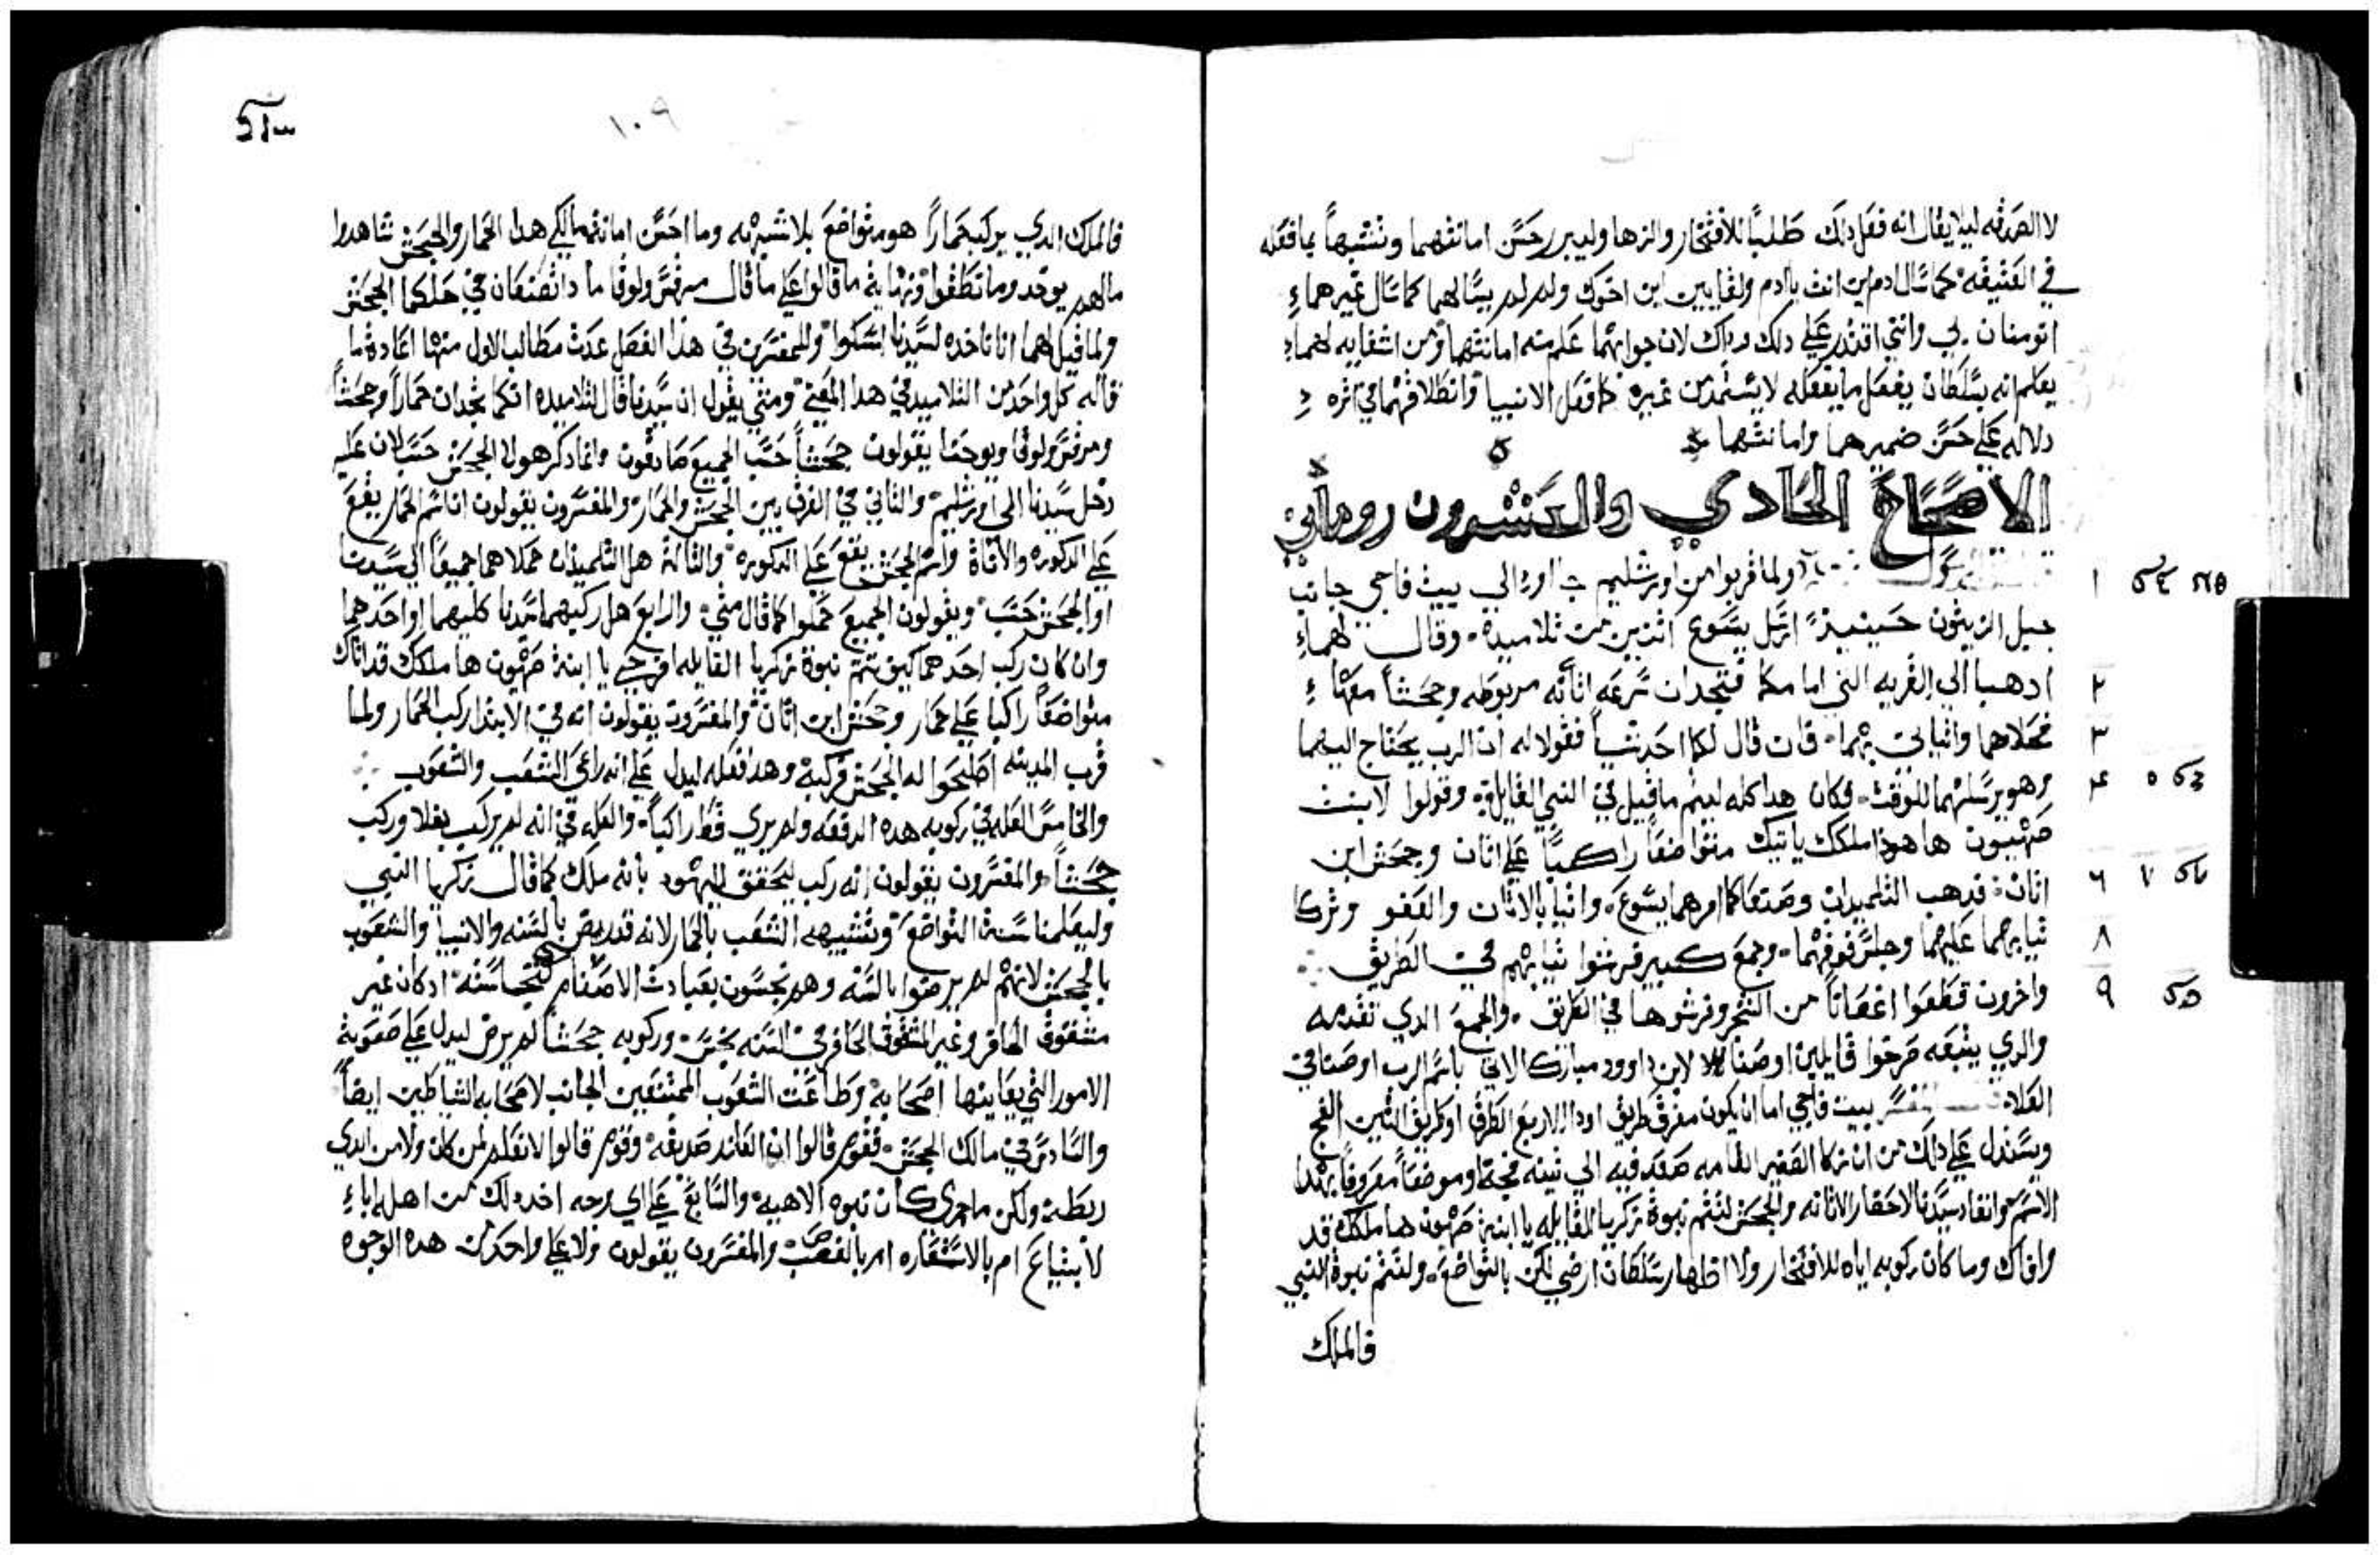 لا الصدقه ليلا يقال انه فعل دلك طلباً للافتخار والزها وليبرر حسن امانتهما وتشبهاً بما فعله
في العتيقه كما سال ادم اين انت يا ادم ولقايين اين اخوك ولم لم يسالهما كما سال غيرهما
اتومنان بي وانني اقتدر علي دلك وداك لان جوابهما علم منه امانتهما ومن اشفايه لهما
يعلم انه بسلطان يفعل ما يفعله لا يستمد من غيره كما فعل الانبيا وانطلاقهما في اثره
دلاله علي حسن ضميرهما وامانتهما
الاصحاح الحادي والعشرون روماني
١ ولما قربوا من اورشليم جاوا الي بيت فاجي جانب
جبل الزيتون حينيذ ارسل يسوع اثنين من تلاميده وقال لهما
٢ ادهبا الي القريه التي امامكما فتجدان سرعه اتانه مربوطه وجحشاً معها
٣ فحلاهما واتياني بهما فان قال لكما احد شياً فقولا له ان الرب يحتاج اليهما
٤ وهو يرسلهما للوقت فكان هدا كله ليتم ما قيل في النبي القايل ٥ وقولوا لابنت
صهيون ها هودا ملكك ياتيك متواضعاً راكباً علي اتان وجحش ابن
٦ اتان ٧ فدهب التلميدان وصنعا كما امرهما يسوع واتيا بالاتان والعفو وتركا
٨ ثيابهما عليهما وجلس فوقهما وجمع كبير فرشوا ثيابهم في الطريق
٩ واخرون قطعوا اغصاناً من الشجر وفرشوها في الطريق والجمع الدي تقدمه
والدي يتبعه صرخوا قايلين اوصنا لابن داوود مبارك الاتي باسم الرب اوصنا في
العلا المفسر بيت فاجي اما ان يكون مفرق طريق الاربع الطرق او طريق التين الفج
ويستدل علي دلك من ان زكا القصير القامه صعد فيه الي تينه فجه او موضعاً معروفاً بهدا
الاسم وانفاد سيدنا لاحضار الاتانه والجحش لتتم نبوة زكريا القايله يا ابنة صهيون ها ملكك قد
وافاك وما كان ركوبه اياه للافتخار ولا اظهار سلطان ارضي لكن بالتواضع ولتتم نبوة النبي
فالملك
١٠٩
فالملك الدي يركب حماراً هو متواضع بلا شبهه وما احسن امانتهما لكي هدا الحمار والجحش شاهدوا
مالهم يوخد وما تطفوا ونهاية ما قالوا علي ما قال مرقس ولوقا مادا تصنعان في حلكما الجحش
ولما قيل لهما اننا ناخده لسيدنا امسكوا وللمفسرين في هدا الفصل عدت مطالب الاول منها اعادة ما
قاله كل واحد من التلاميد في هدا المعني ومتي يقول ان سيدنا قال لتلاميده انكما تجدان حماراً وجحشاً
ومرقس ولوقا ويوحنا يقولون جحشاً حسب الجميع صادقون وانما دكر هولا الجحش حسب لان عليه
دخل سيدنا الي اورشليم والتاني في الفرق بين الجحش والحمار والمفسرون يقولون ان اسم الحمار يقع
علي الدكوره والاناة واسم الجحش يقع علي الدكوره والتالت هل التلميدان حملاهما جميعاً الي سيدنا
او الجحش حسب ويقولون الجميع حملوا كما قال متي والرابع هل ركبهما سيدنا كليهما او احدهما
وان كان ركب احدهما كيف تتم نبوة زكريا القايله افرحي يا ابنة صهيون ها ملكك قد اتاك
متواضعاً راكبا علي حمار وجحش ابن اتان والمفسرون يقولون انه في الابتدا ركب الحمار ولما
قرب المدينه اصلحوا له الجحش فركبه وهدا فعله ليدل علي انه راعي الشعب والشعوب
والخامس العله في ركوبه هده الدفعه ولم يري قط راكباً والعله في انه لم يركب بغلا وركب
جحشاً والمفسرون يقولون انه ركب ليحقق لليهود بانه ملك كما قال زكريا النبي
وليعلمنا سنة التواضع وتشبيهه الشعب بالحمار لانه قد ريض بالسنه والانبيا والشعوب
بالجحش لانهم لم يرضوا بالسنه وهم نجسون بعبادت الاصنام ادكان غير
مشقوق الحافر وغير المشقوق الحافر في السنه نجس وركوبه جحشاً لم يرض ليدل علي صعوبة
الامور التي يعاينها اصحابه وطاعت الشعوب الممتنعين الجانب لاصحابه الشياطين ايضاً
والسادس في مالك الجحش فقوم قالوا ان العازر صديقه وقوم قالوا لا نعلم لمن كان ولا من الدي
ربطه ولكن ما جري كان نبوه الاهيه والسابع علي اي وجه اخد دلك من اهله
لابتياع ام بالاستعاره ام بالغصب والمفسرون يقولون ولا علي واحد من هده الوجوه